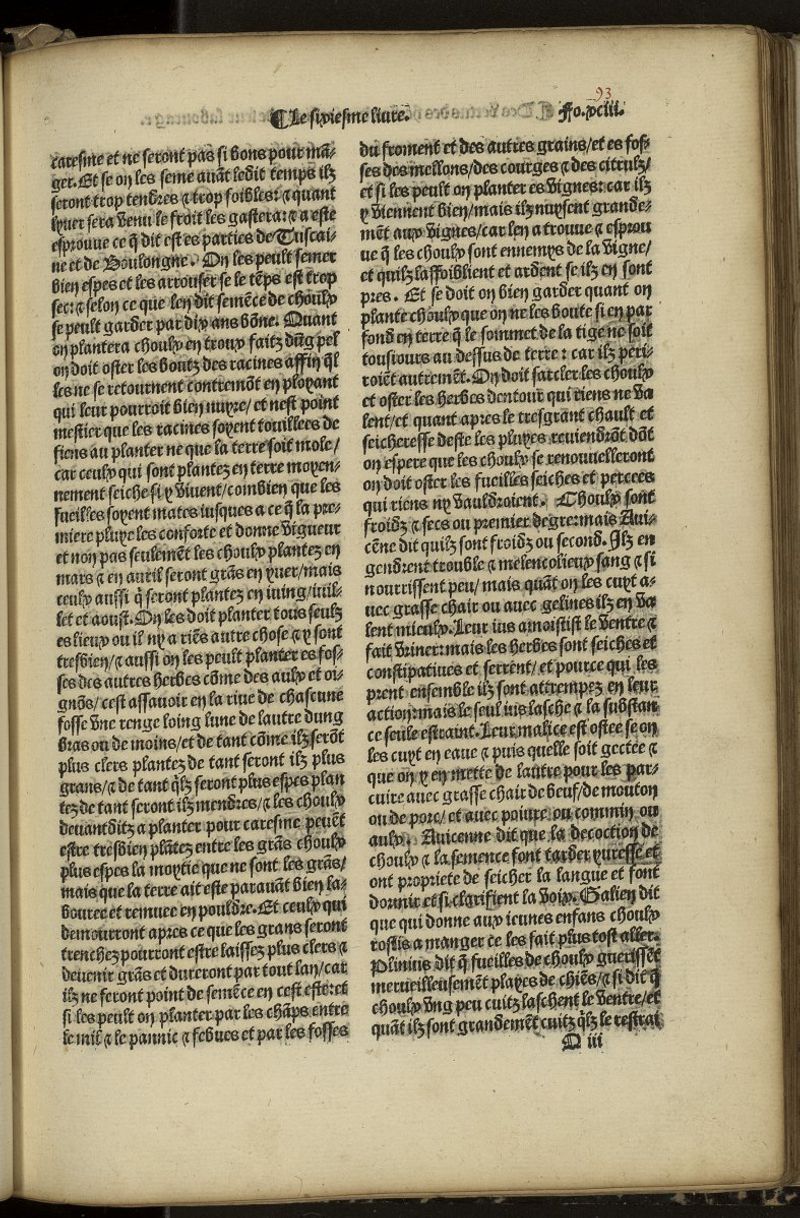 93
¶Le sixiesme liure. Fo.xciii.
caresme et ne seront pas si bons pour mā-
ger. Et se on les seme auāt ledit temps ilz
seront trop tendres ⁊ trop foibles: ⁊ quant
lyuer sera venu le froit les gastera: ⁊ a este
esprouue ce q̄ dit est es parties de Tuscai-
ne et de Boulongne. On les peult semer
bien espes et les arrouser se le tēps est trop
sec: ⁊ selon ce que len dit semēce de choulx
se peult garder par dix ans bōne. Quant
on plantera choulx en troux faitz dūg pel
on doit oster les boutz des racines affin q̄l
les ne se retournent contremōt en ployant
qui leur pourroit bien nuyre/ et nest point
mestier que les racines soyent touillees de
fiens au planter ne que la terre soit mole/
car ceulx qui sont plantez en terre moyen-
nement seiche si y viuent/combien que les
fueilles soyent mates iusques a ce q̄ la pre-
miere pluye les conforte et donne vigueur
et non pas seulemēt les choulx plantez en
mars ⁊ en auril seront grās en yuer/mais
ceulx aussi q̄ seront plantez en iuing/iuil-
let et aoust. On les doit planter tous seulz
es lieux ou il ny a riēs autre chose ⁊ y sont
tresbien/⁊ aussi on les peult planter es fos-
ses des autres herbes cōme des aulx et oi-
gnōs/ cest assauoir en la riue de chascune
fosse vne renge loing lune de lautre dung
bras ou de moins/et de tant cōme ilz serōt
plus clers plantez de tant seront ilz plus
grans/⁊ de tant q̄lz seront plus espes plan
tez de tant seront ilz mendres/⁊ les choulx
deuantditz a planter pour caresme peuēt
estre tresbien plātez entre les grās choulx
plus espes la moytie que ne sont les grās/
mais que la terre ait este parauāt bien la-
bouree et remuee en pouldre. Et ceulx qui
demourront apres ce que les grans seront
trenchez pourront estre laissez plus clers ⁊
deuenir grās et dureront par tout lan/car
ilz ne feront point de semēce en cest este: et
si les peult on planter par les chāps entre
le mil ⁊ le pannic ⁊ febues et par les fosses
du froment et des autres grains/et es fos-
ses des mellons/des courges ⁊ des citrulz/
et si les peult on planter es vignes: car ilz
y viennent bien/mais ilz nuysent grande-
mēt aux vignes/car len a trouue ⁊ esprou
ue q̄ les choulx sont ennemys de la vigne/
et quilz laffoiblient et ardent se ilz en sont
pres. Et se doit on bien garder quant on
plante choulx que on ne les boute si en par
fond en terre q̄ le sommet de la tige ne soit
tousiours au dessus de terre: car ilz peri-
roiēt autremēt. On doit sarcler les choulx
et oster les herbes dentour qui riens ne va
lent/et quant apres le tresgrant chault et
seicheresse deste les pluyes reuiendrōt dōt
on espere que les choulx se renouuelleront
on doit oster les fueilles seiches et percees
qui riens ny vauldroient. Choulx sont
froidz ⁊ secs ou premier degre: mais Aui-
cēne dit quilz sont froidz ou second. Ilz en
gendrent trouble ⁊ melencolieux sang ⁊ si
nourrissent peu/ mais quāt on les cuyt a-
uec grasse chair ou auec gelines ilz en va
lent mieulx. Leur ius amoistist le ventre ⁊
fait vriner: mais les herbes sont seiches et
constipatiues et serrent/ et pource qui les
prent ensemble ilz sont attrempez en leur
action: mais le seul ius lasche ⁊ la substan
ce seule estraint. Leur malice est ostee se on
les cuyt en eaue ⁊ puis quelle soit gectee ⁊
que on y en mette de lautre pour les par-
cuire auec grasse chair de beuf/de mouton
ou de porc/ et auec poiure ou commin ou
aulx. Auicenne dit que la decoction de
choulx ⁊ la semence font tarder yuresse et
ont propriete de seicher la langue et font
dormir et si clarifient la voix. Galien dit
que qui donne aux ieunes enfans choulx
rostis a manger ce les fait plus tost aller.
Plinius dit q̄ fueilles de choulx guerissēt
merueilleusemēt playes de chiēs/⁊ si dit q̄
choulx vng peu cuitz laschent le ventre/et
quāt ilz sont grandemēt cuitz q̄lz le restrai
D iii